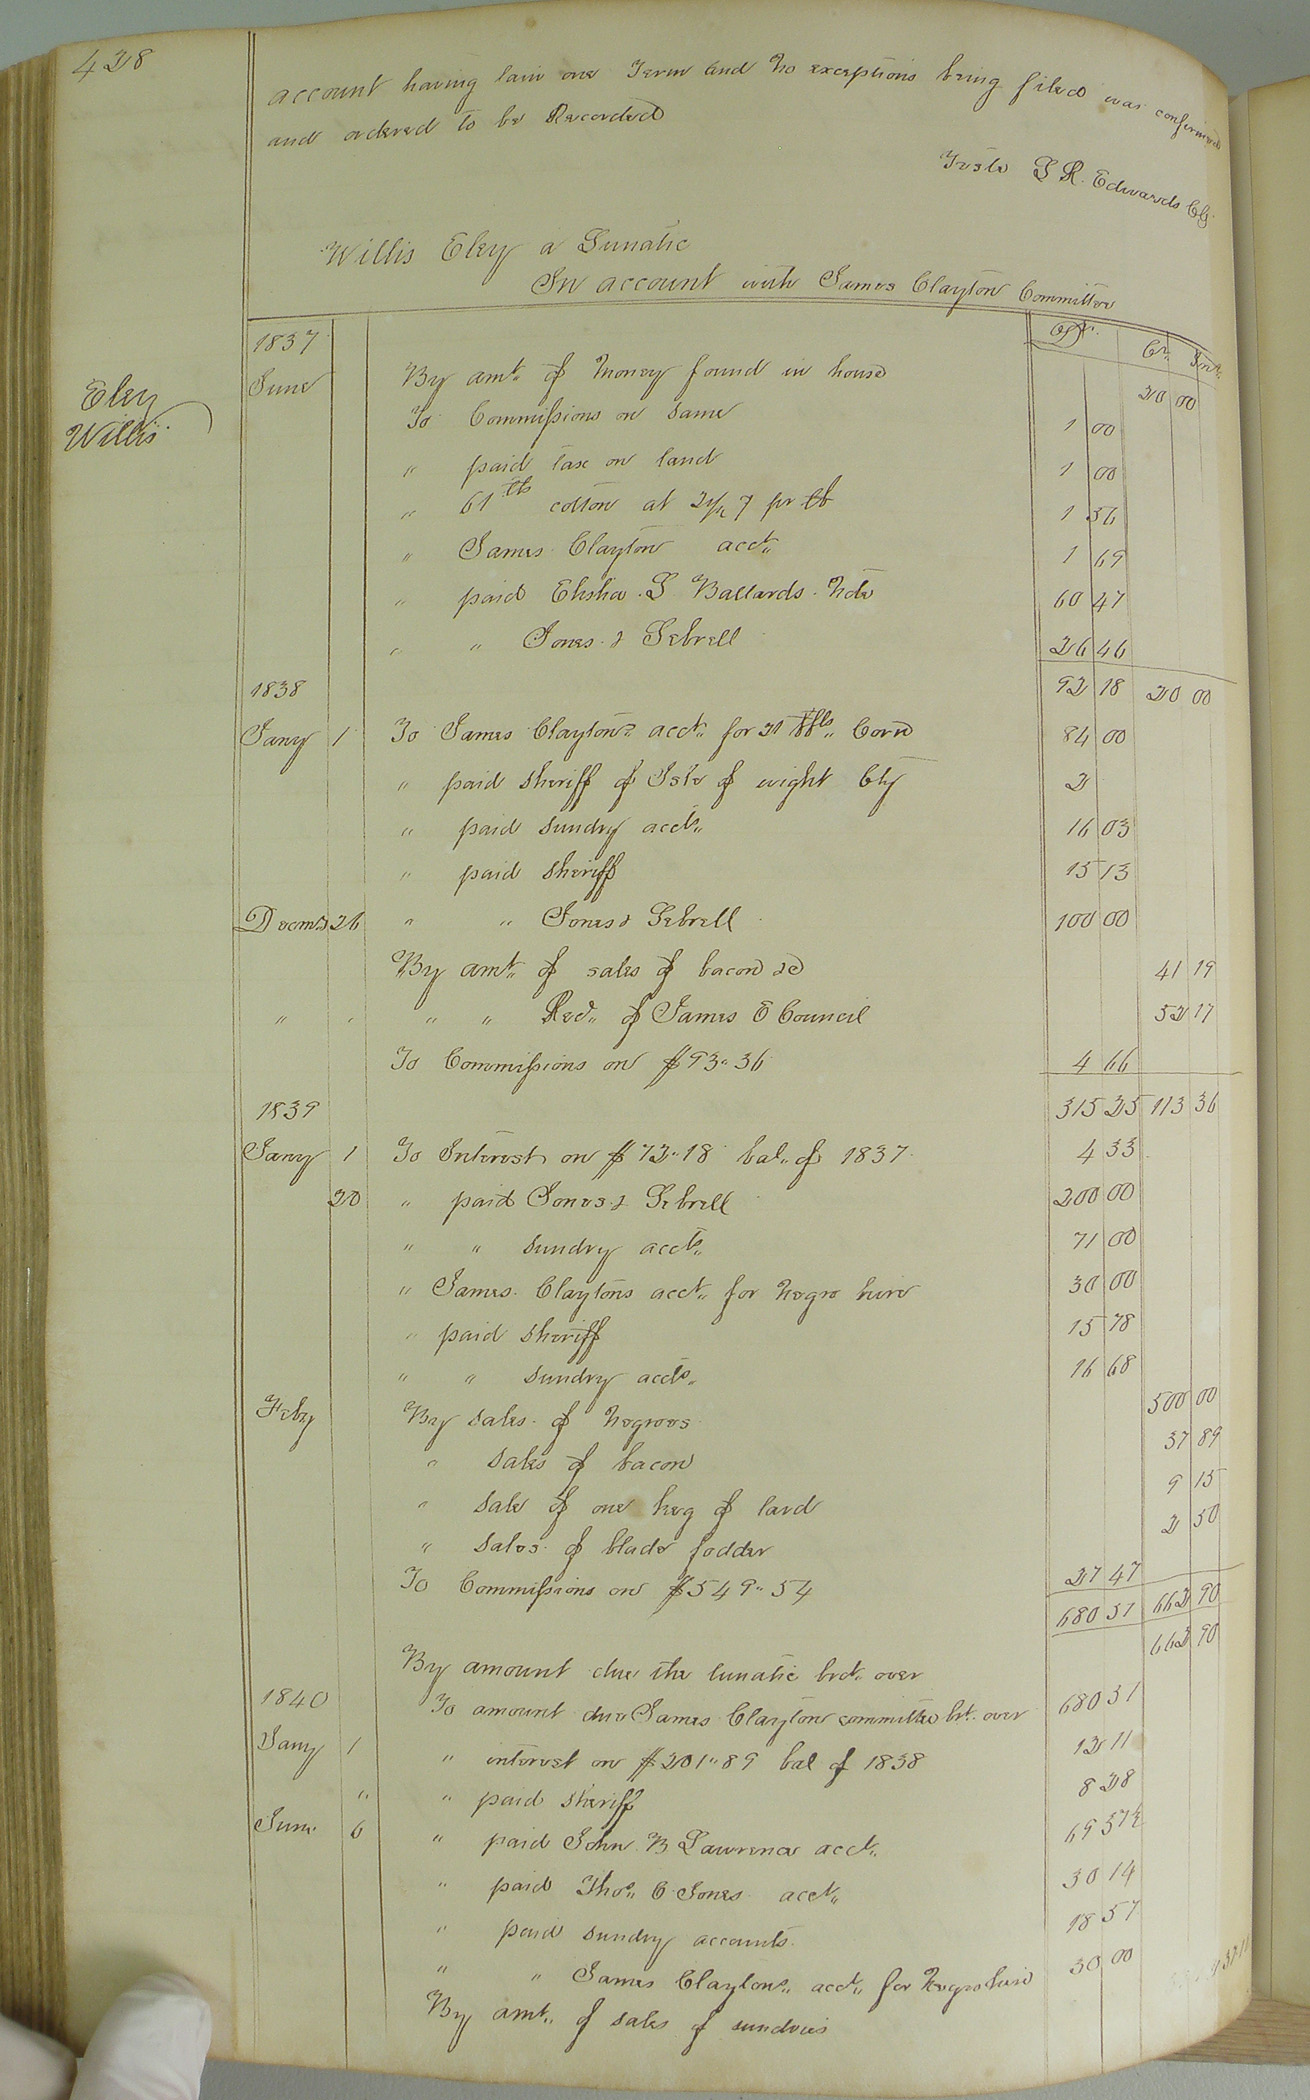 428
account having lain one Term and no exceptions being filed was confirmed
and ordered to be Recorded
Teste L R. Edwards Clk
Willis Eley a Lunatic
In account with James Clayton Committee
Eley
Willis
1837 Cr.
June By amt. of money found in house 20 00
To Commissions on same 1 00
" paid tax on land 1 00
" 61 lbs cotton at pr lb 1 36
" James Clayton acct. 1 69
" paid Elisha L Ballards Note 60 47
" " Jones & Sebrell 26 46
1838 92 18 20 00
Jany 1 To James Claytons acct. for 21 bbls. Corn 84 00
" paid sheriff of Isle of wight Cty 2
" paid sundry accts. 16 03
" paid sheriff 15 13
Decem 26 " " Jones & Sebrell 100 00
By amt. of sales of bacon &c 41 19
" " " " Recd. of James E Council 52 17
To Commissions on $93.36 4 66
1839 315 25 113 36
Jany 1 To Interest on $72.18 bal. of 1837 4 33
20 " paid Jones & Sebrell 200 00
" " sundry accts. 71 00
" James Claytons acct. for negro hire 30 00
" paid sheriff 15 78
" " sundry accts. 16 68
Feby By sales of negroes 500 00
" sales of bacon 37 89
" sale of one keg of lard 9 15
" sales of blade fodder 2 50
To Commissions on $549.54 27 47
680 51 662 90
By amount due the lunatic brt. over 662 90
1840 To amount due James Clayton committee brt. over 680 51
Jany 1 " interest on $201.89 bal of 1838 12 11
" " paid sheriff 8 28
June 6 " paid John B Lawrence acct. 69 37½
" paid Thos. C Jones acct. 30 14
" paid sundry accounts 18 57
" " James Claytons. acct. for negro hire 30 00
By amt. of sales of sundries